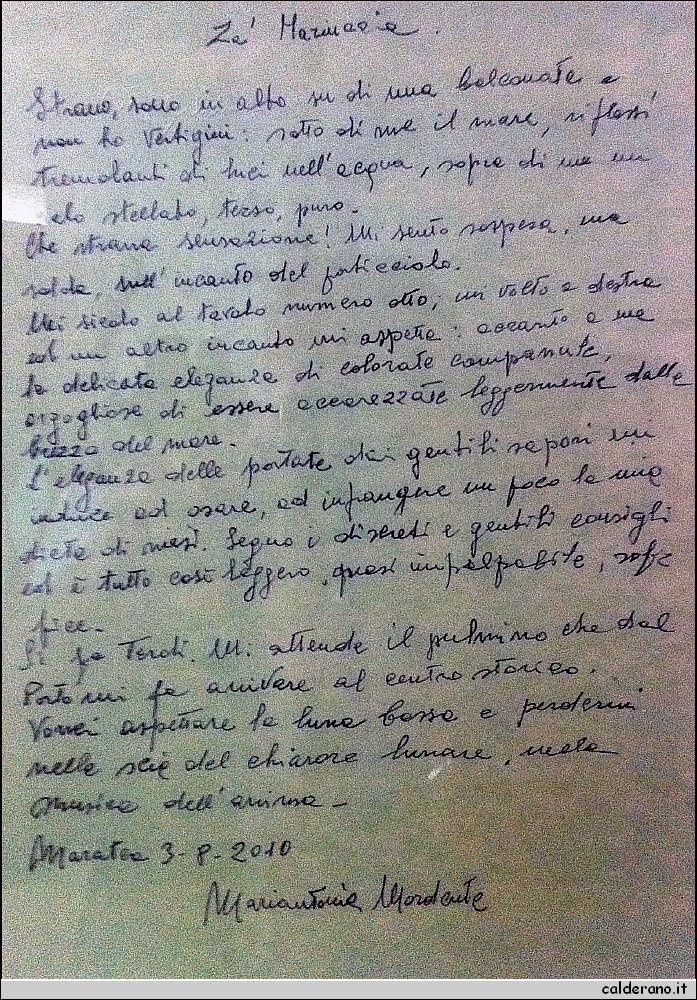 Za' Marinaria.
Strano, sono in alto su di una balconata e
non ho vertigini: sotto di me il mare, riflessi
tremolanti di luci nell'acqua, sopra di me un
cielo stellato, terso, puro.
Che strana sensazione! Mi sento sospesa, ma
salda, sull'incanto del porticciolo.
Mi siedo al tavolo numero otto; mi volto a destra
ed un altro incanto mi aspetta: accanto a me
la delicata eleganza di colorate campanule,
orgogliose di essere accarezzate leggermente dalla
brezza del mare.
L'eleganza delle portate dai gentili sapori mi
induce ad osare, ad infrangere un poco la mia
dieta di mesi. Seguo i discreti e gentili consigli
ed è tutto così leggero, quasi impalpabile, soffi
ce.
Si fa Tardi. Mi attende il pulmino che dal
Porto mi fa arrivare al centro storico.
Vorrei aspettare la luna bassa e perdermi
nelle scie del chiarore lunare, nella
musica dell'anima -
Maratea 3-8-2010
Mariantonia Mordente
calderano.it